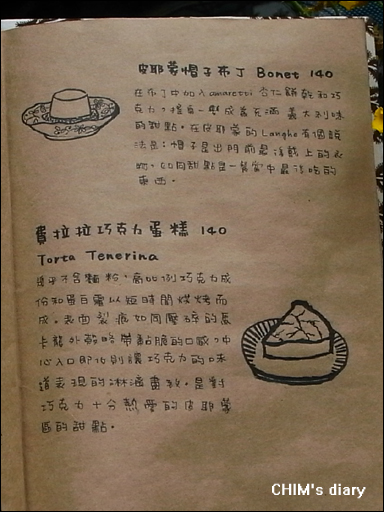 皮耶蒙帽子布丁 Bonet 140
在布丁中加入amaretti杏仁餅乾和巧
克力，搖身一變成為充滿義大利味
的甜點。在皮耶蒙的Langhe有個說
法是：帽子是出門前最後戴上的衣
物，如同甜點是一餐當中最後吃的
東西。
費拉拉巧克力蛋糕 140
Torta Tenerina
幾乎不含麵粉，高比例巧克力成
份和蛋白霜以短時間烘烤而
成。表面裂痕如同壓碎的馬
卡龍外殼略帶黏脆的口感，中
心入口即化則讓巧克力的味
道表現的淋漓盡致。是對
巧克力十分熱愛的皮耶蒙
區的甜點。
CHIM's diary